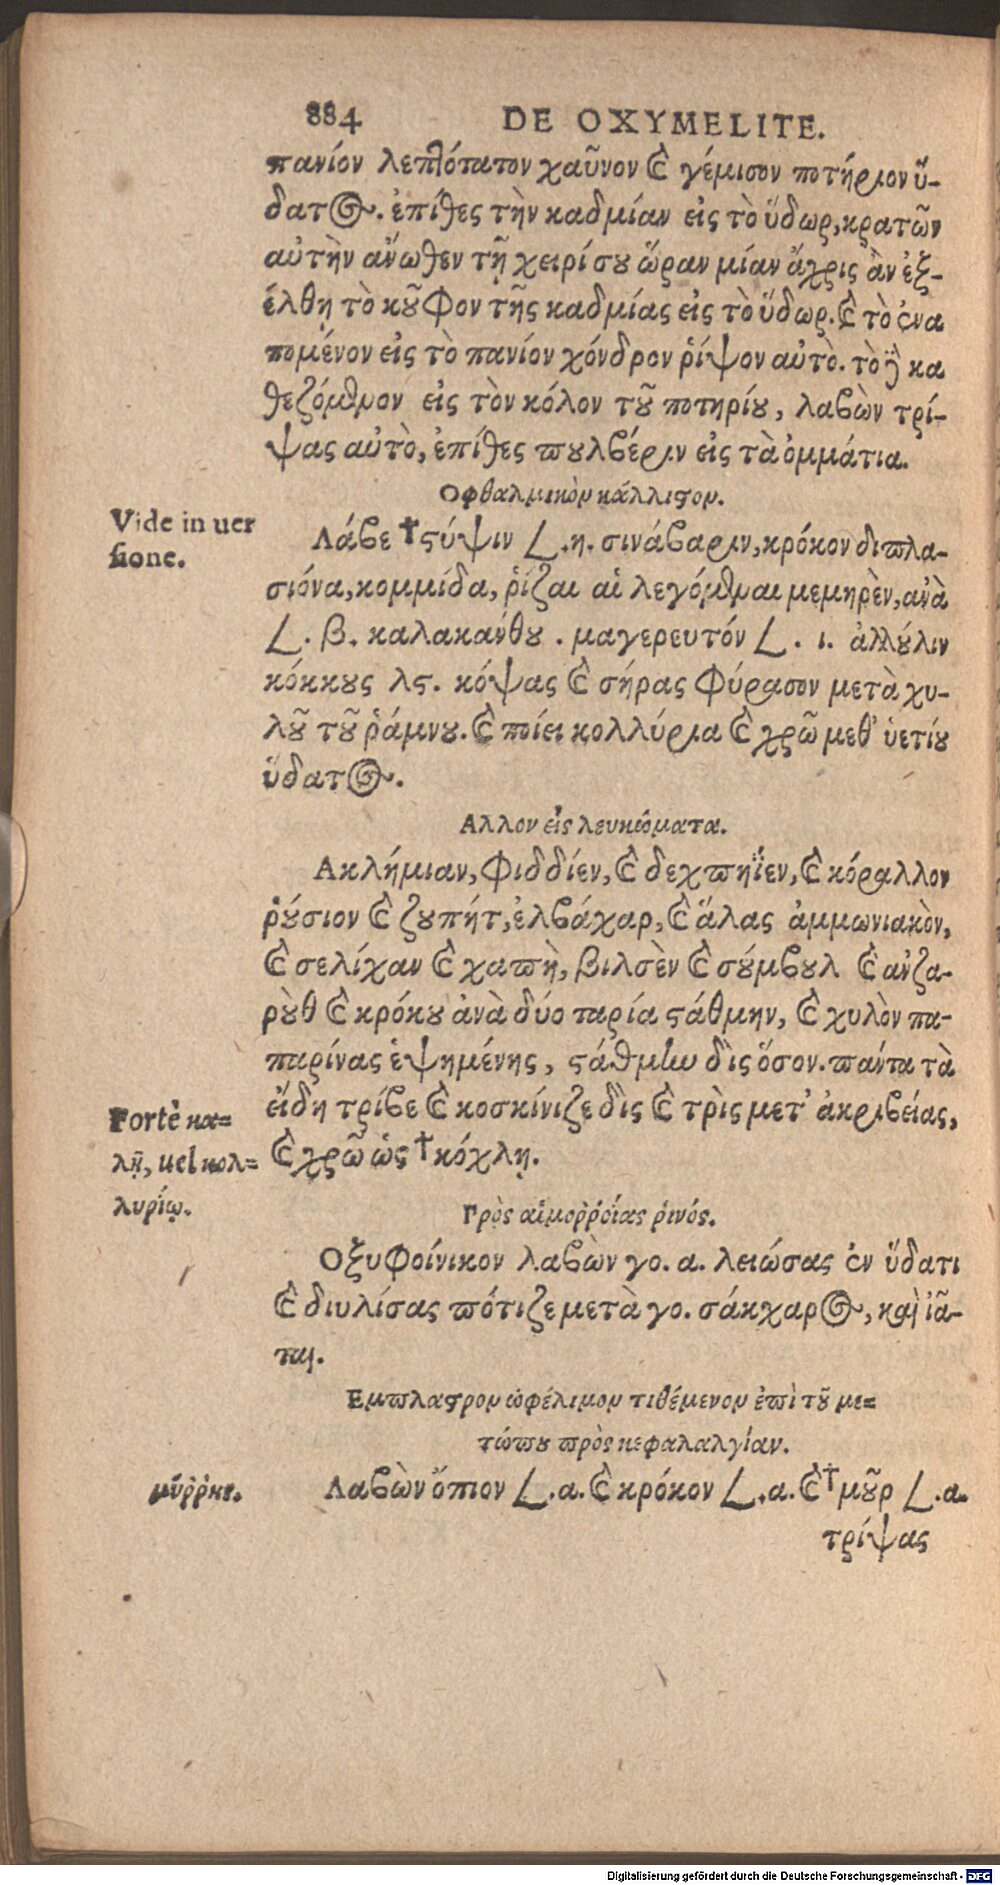 884 DE OXYMELITE.
πανίον λεπτότατον χαῦνον καὶ γέμισον ποτήριον ὕ-
δατος. ἐπίθες τὴν καδμίαν εἰς τὸ ὕδωρ, κρατῶν
αὐτὴν ἄνωθεν τῇ χειρί σου ὥραν μίαν ἄχρις ἂν ἐξ-
έλθῃ τὸ κοῦφον τῆς καδμίας εἰς τὸ ὕδωρ. καὶ τὸ ἐνα
πομένον εἰς τὸ πανίον χόνδρον ῥίψον αὐτὸ. τὸ δὲ κα
θεζόμενον εἰς τὸν κόλον τοῦ ποτηρίου, λαβὼν τρί-
ψας αὐτὸ, ἐπίθες πουλβέριν εἰς τὰ ὀμμάτια.
Οφθαλμικὸν κάλλιστον.
Vide in uer
sione.
Λάβε † στύψιν L. η. σινάβαριν, κρόκον διπλα-
σιόνα, κομμίδα, ῥίζαι αἱ λεγόμεναι μεμηρὲν, ἀνὰ
L. β. καλακάνθου. μαγερευτόν L. ι. ἀλλούλιν
κόκκους λϛ. κόψας καὶ σήρας φύρασον μετὰ χυ-
λοῦ τοῦ ῥάμνου. καὶ ποίει κολλύρια καὶ χρῶ μεθ' ὑετίου
ὕδατος.
Αλλον εἰς λευκώματα.
Ακλήμιαν, φιδδίεν, καὶ δεχπηΐεν, καὶ κόραλλον
ῥούσιον καὶ ζουπήτ, ἐλβάχαρ, καὶ ἅλας ἀμμωνιακὸν,
καὶ σελίχαν καὶ χαπὴ, βιλσὲν καὶ σύμβουλ καὶ ἀνζα-
ροὺθ καὶ κρόκου ἀνὰ δύο παρία στάθμην, καὶ χυλὸν πα-
παρίνας ἑψημένης, στάθμην δὶς ὅσον. πάντα τὰ
εἴδη τρίβε καὶ κοσκίνιζε δὶς καὶ τρὶς μετ' ἀκριβείας,
καὶ χρῶ ὡς † κόχλῃ.
Fortè κα-
λῇ, uel κολ-
λυρίῳ.
Πρὸς αἱμοῤῥοίας ῥινός.
Οξυφοίνικον λαβὼν γο. α. λειώσας ἐν ὕδατι
καὶ διυλίσας πότιζε μετὰ γο. σάκχαρος, καὶ ἰᾶ-
ται.
Εμπλαστρον ὠφέλιμον τιθέμενον ἐπὶ τοῦ με-
τώπου πρὸς κεφαλαλγίαν.
μύῤῥης.
Λαβὼν ὄπιον L. α. καὶ κρόκον L. α. καὶ † μοῦρ L. α.
τρίψας
Digitalisierung gefördert durch die Deutsche Forschungsgemeinschaft - DFG